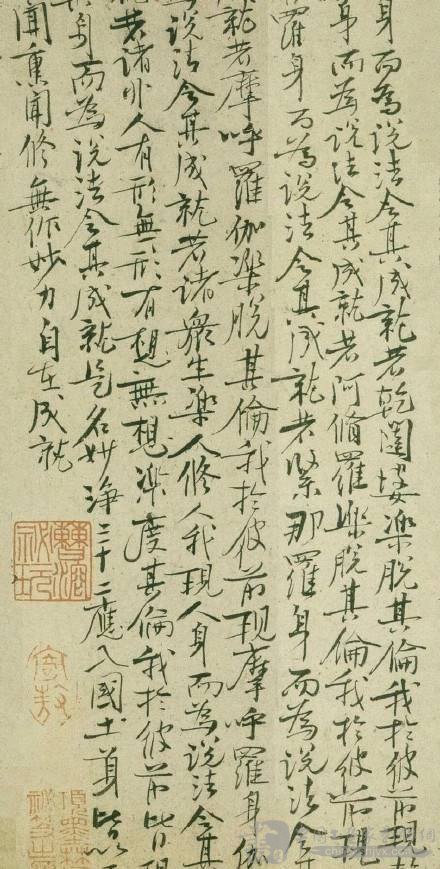 身而為說法令其成就若乾闥婆樂脫其倫我於彼前現乾
身而為說法令其成就若阿脩羅樂脫其倫我於彼前現
羅身而為說法令其成就若緊那羅身而為說法令其
就若摩呼羅伽樂脫其倫我於彼前現摩呼羅身伽
為說法令其成就若諸衆生樂人修人我現人身而為說法令其
就若諸非人有形無形有想無想樂度其倫我於彼前皆現
其身而為說法令其成就是名妙淨三十二應入國土身皆以
聞熏聞修無作妙力自在成就